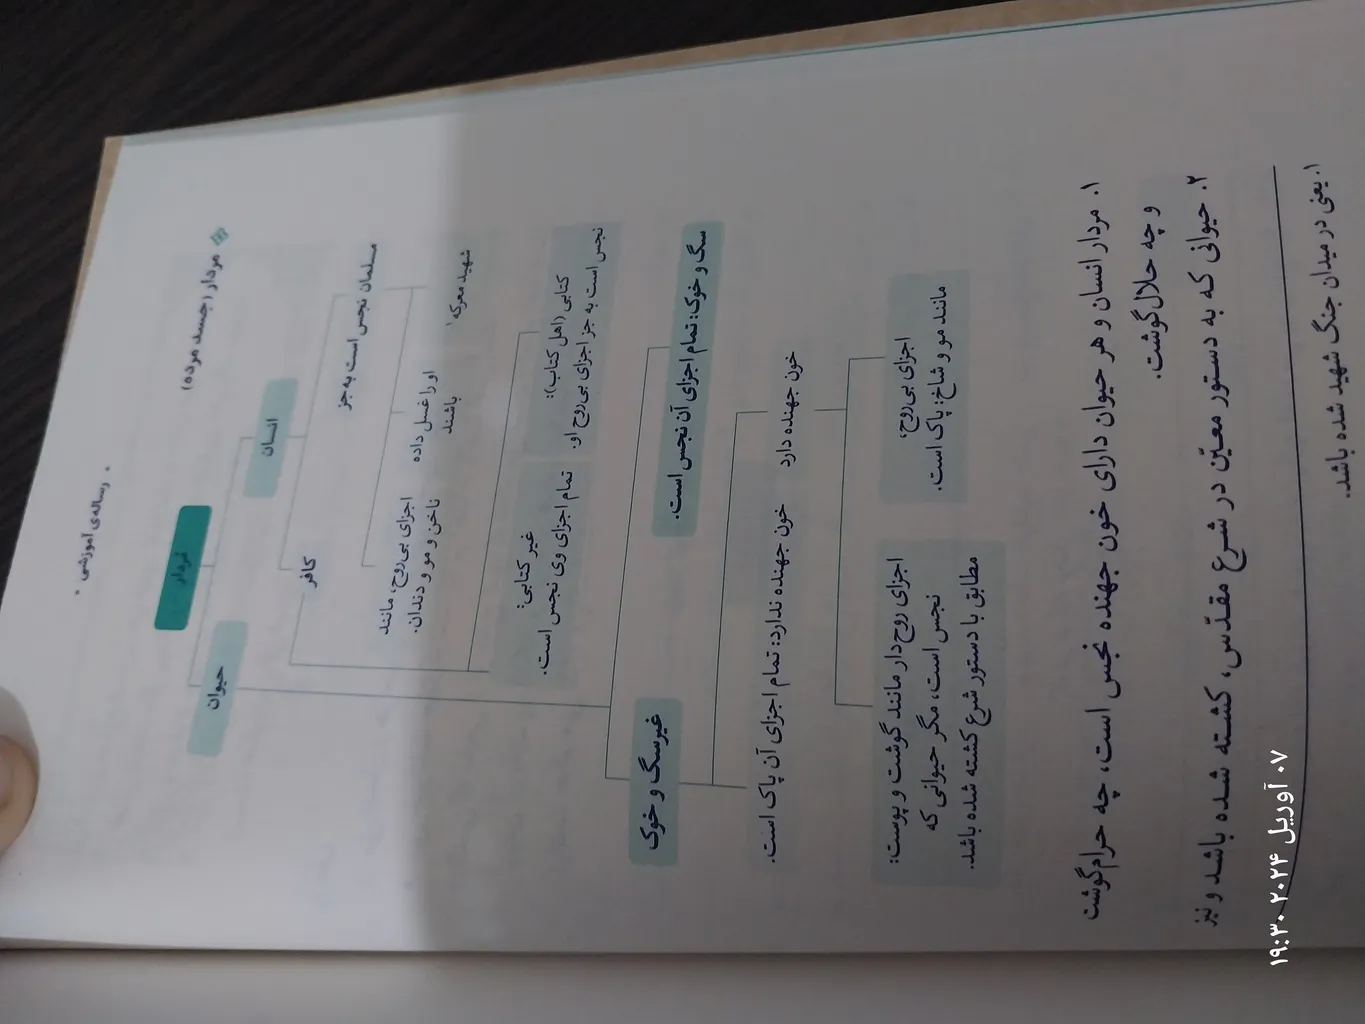 • رساله‌ی آموزشی •
مردار (جسد مرده)
مردار
انسان
حیوان
مسلمان نجس است به جز
کافر
شهید معرکه۱
او را غسل داده
باشند
اجزای بی‌روح، مانند
ناخن و مو و دندان.
کتابی (اهل کتاب):
نجس است به جز اجزای بی‌روح او.
غیر کتابی:
تمام اجزای وی نجس است.
سگ و خوک: تمام اجزای آن نجس است.
غیر سگ و خوک
خون جهنده دارد
خون جهنده ندارد: تمام اجزای آن پاک است.
اجزای بی‌روح،
مانند مو و شاخ: پاک است.
اجزای روح‌دار مانند گوشت و پوست:
نجس است، مگر حیوانی که
مطابق با دستور شرع کشته شده باشد.
۱. مردار انسان و هر حیوان دارای خون جهنده نجس است، چه حرام‌گوشت
و چه حلال‌گوشت.
۲. حیوانی که به دستور معیّن در شرع مقدّس، کشته شده باشد و نیز
۱. یعنی در میدان جنگ شهید شده باشد.
۰۷ آوریل ۲۰۲۴ ۱۹:۳۰